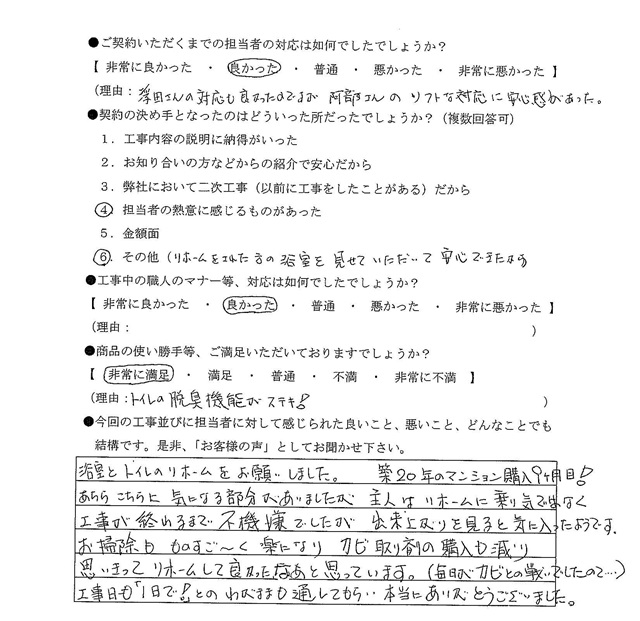 ●ご契約いただくまでの担当者の対応は如何でしたでしょうか？
【 非常に良かった ・ 良かった ・ 普通 ・ 悪かった ・ 非常に悪かった 】
(理由： さんの対応も良かったのですが 阿部さんの ソフトな対応に安心感があった。
●契約の決め手となったのはどういった所だったでしょうか？（複数回答可）
１．工事内容の説明に納得がいった
２．お知り合いの方などからの紹介で安心だから
３．弊社において二次工事（以前に工事をしたことがある）だから
４．担当者の熱意に感じるものがあった
５．金額面
６．その他（リホームをされた方の浴室を見せていただいて安心できたから
●工事中の職人のマナー等、対応は如何でしたでしょうか？
【 非常に良かった ・ 良かった ・ 普通 ・ 悪かった ・ 非常に悪かった 】
(理由： )
●商品の使い勝手等、ご満足いただいておりますでしょうか？
【 非常に満足 ・ 満足 ・ 普通 ・ 不満 ・ 非常に不満 】
(理由：トイレの脱臭機能がステキ! )
●今回の工事並びに担当者に対して感じられた良いこと、悪いこと、どんなことでも
結構です。是非、「お客様の声」としてお聞かせ下さい。
浴室とトイレのリホームをお願いしました。 築20年のマンション購入9ヶ月目!
あちらこちらに気になる部分がありましたが 主人はリホームに乗り気ではなく
工事が終わるまで不機嫌でしたが 出来上りを見ると気に入ったようです。
お掃除も ものすご〜く楽になり カビ取り剤の購入も減り
思いきってリホームして良かったなあと思っています。(毎日がカビとの戦いでしたので…)
工事日も「1日で!」とのわがままも通してもらい‥本当にありがとうございました。